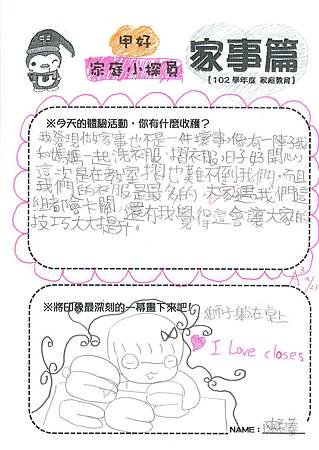 甲好
家庭小探員
家事篇
【102 學年度 家庭教育】
※今天的體驗活動，你有什麼收穫？
我發現做家事也不是一件壞事，像有一陣子我
和媽媽一起洗衣服、摺衣服，日子好開心，
這次是在教室摺也難不倒我們，而且
我們的衣服是最多的，大家遇我們這
組都會卡關，還有我覺得這會讓大家的
技巧大大提升。
※將印象最深刻的一幕畫下來吧！
獅子躺在桌上
I Love closes
NAME：